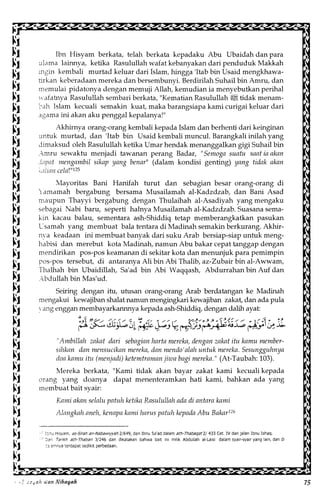 Ibn Hisyam berkata, telah berkata kepadaku Abu Ubaidah dan para
ulama lainnya, ketika Rasulullah wafat kebanyakan dari penduduk Makkah
ingin kembali murtad keluar dari Islam, hingga 'Itab bin Usaid mengkhawa-
tirkan keberadaan mereka dan bersembunyi. Berdirilah Suhail bin Amru, dan
memulai pidatonya dengan memuji Allah, kemudian ia menyebutkan perihal
wafatnya Rasulullah sembari berkata, "Kematian Rasulullah ﷺ tidak menam-
bah Islam kecuali semakin kuat, maka barangsiapa kami curigai keluar dari
agama ini akan aku penggal kepalanya!"
Akhirnya orang-orang kembali kepada Islam dan berhenti dari keinginan
untuk murtad, dan 'Itab bin Usaid kembali muncul. Barangkali inilah yang
dimaksud oleh Rasulullah ketika Umar hendak menanggalkan gigi Suhail bin
Amru sewaktu menjadi tawanan perang Badar, "Semoga suatu saat ia akan
dapat mengambil sikap yang benar" (dalam kondisi genting) yang tidak akan
kalian cela!"125
Mayoritas Bani Hanifah turut dan sebagian besar orang-orang di
Yamamah bergabung bersama Musailamah al-Kadzdzab, dan Bani Asad
maupun Thayyi bergabung dengan Thulaihah al-Asadiyah yang mengaku
sebagai Nabi baru, seperti halnya Musailamah al-Kadzdzab. Suasana sema-
kin kacau balau, sementara ash-Shiddiq tetap memberangkatkan pasukan
Usamah yang membuat bala tentara di Madinah semakin berkurang. Akhir-
nya keadaan ini membuat banyak dari suku Arab bersiap-siap untuk meng-
habisi dan merebut kota Madinah, namun Abu bakar cepat tanggap dengan
mendirikan pos-pos keamanan di sekitar kota dan menunjuk para pemimpin
pos-pos tersebut, di antaranya Ali bin Abi Thalib, az-Zubair bin al-Awwam,
Thalhah bin Ubaidillah, Sa'ad bin Abi Waqqash, Abdurrahman bin Auf dan
Abdullah bin Mas'ud.
Seiring dengan itu, utusan orang-orang Arab berdatangan ke Madinah
mengakui kewajiban shalat namun mengingkari kewajiban zakat, dan ada pula
yang enggan membayarkannnya kepada ash-Shiddiq, dengan dalih ayat:
خُذْ مِنْ أَمْوَالِهِمْ صَدَقَةً تُطَهِّرُهُمْ وَتُزَكِّيهِم بِهَا وَصَلِّ عَلَيْهِمْ إِنَّ صَلَوٰتَكَ سَكَنٌ لَّهُمْ
"Ambillah zakat dari sebagian harta mereka, dengan zakat itu kamu member-
sihkan dan mensucikan mereka, dan mendo'alah untuk mereka. Sesungguhnya
doa kamu itu (menjadi) ketentraman jiwa bagi mereka." (At-Taubah: 103).
Mereka berkata, "Kami tidak akan bayar zakat kami kecuali kepada
orang yang doanya dapat menenteramkan hati kami, bahkan ada yang
membuat bait syair:
Kami akan selalu patuh ketika Rasulullah ada di antara kami
Alangkah aneh, kenapa kami harus patuh kepada Abu Bakar126
75